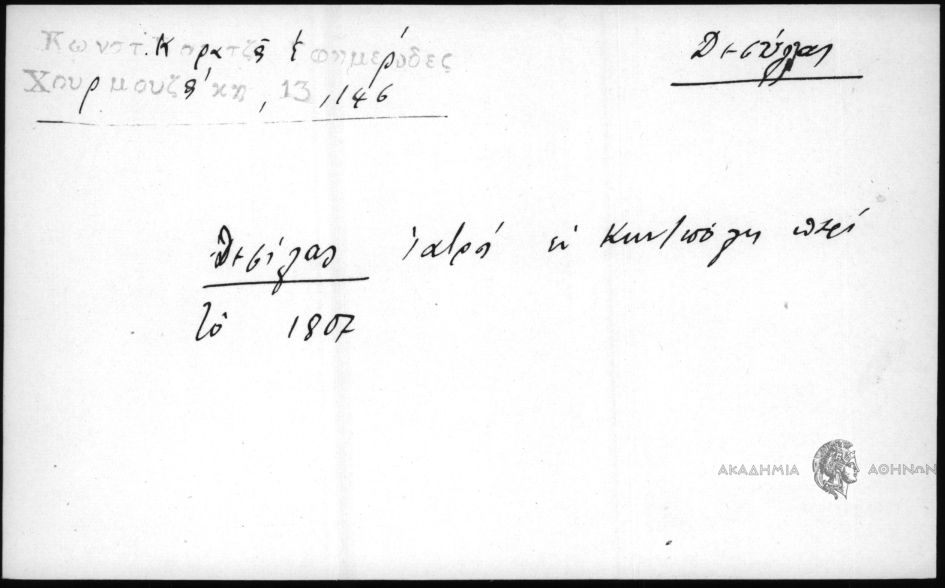 Κωνστ. Καρατζᾶ Ἐφημερίδες
Χουρμουζάκη, 13, 146
Δεσύλλας
Δεσύλας ἰατρός ἐν Κων/πόλη περί
τό 1807
ΑΚΑΔΗΜΙΑ ΑΘΗΝΩΝ